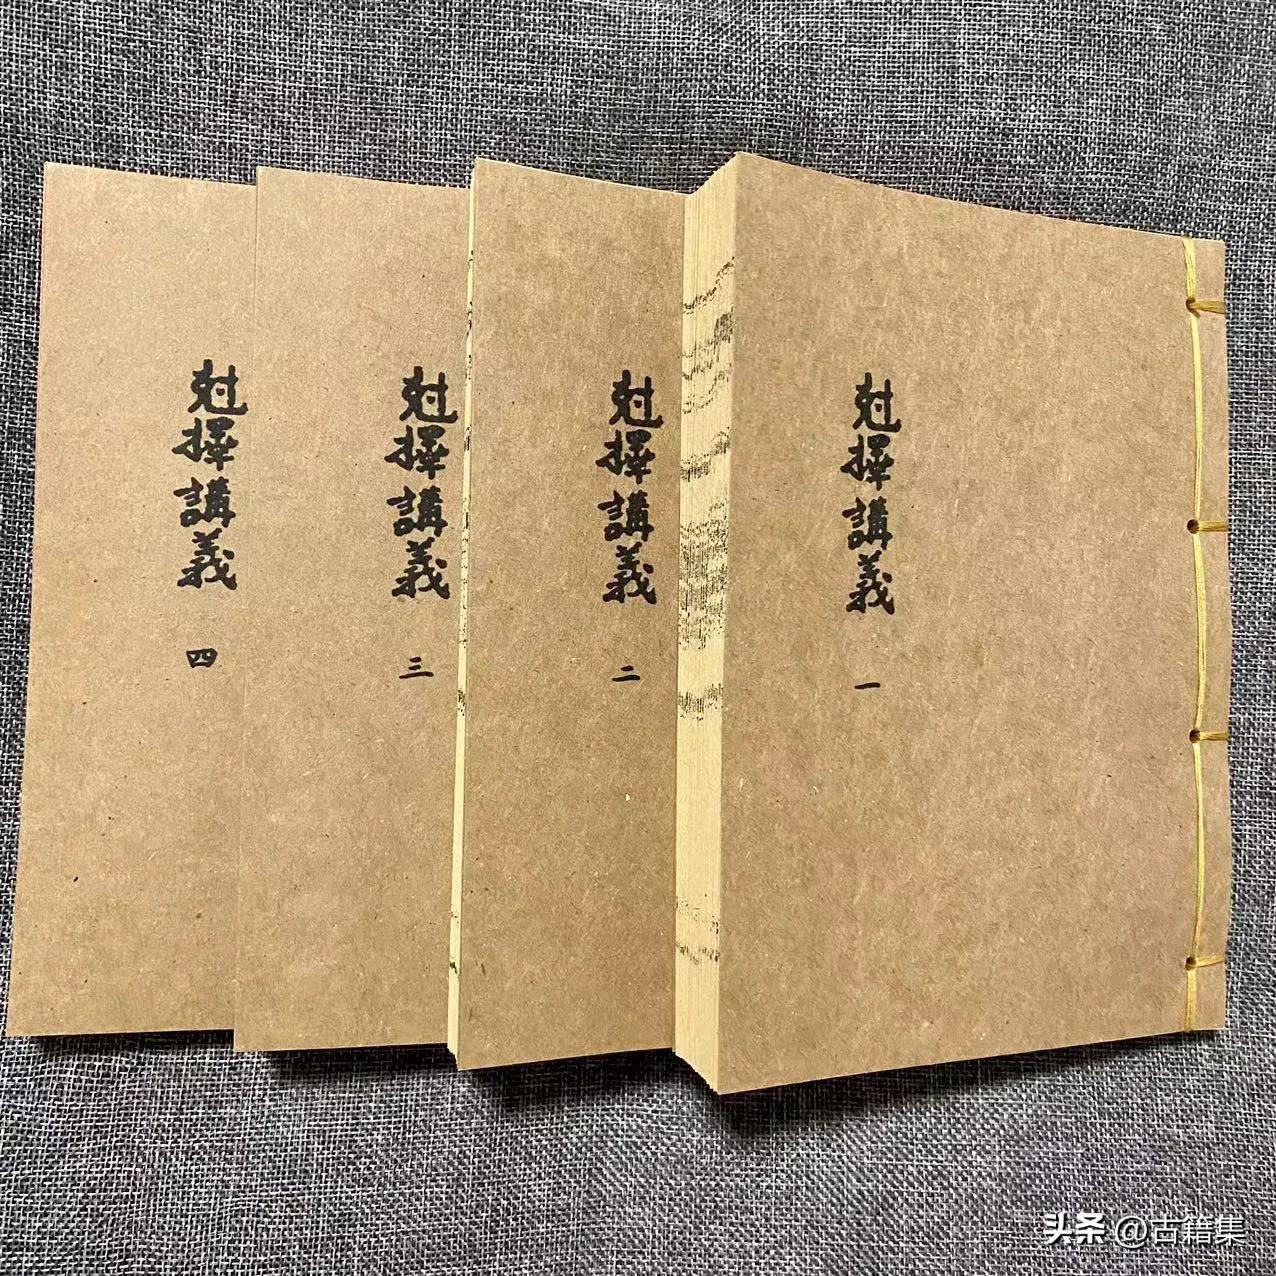 尅擇講義 一
尅擇講義 二
尅擇講義 三
尅擇講義 四
头条 @古籍集